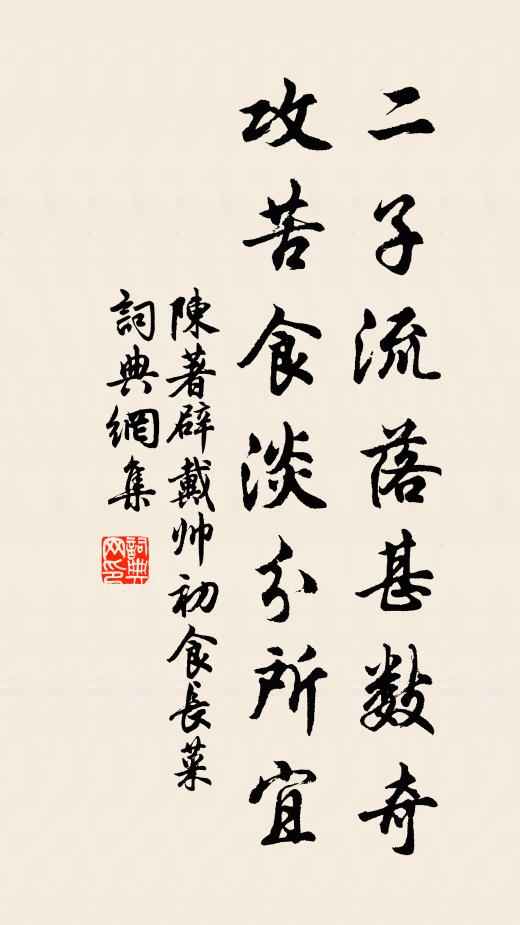 二子流落甚數奇
攻苦食淡分所宜
陳著辟戴帅初食長菜
詞典網集
詞典网印